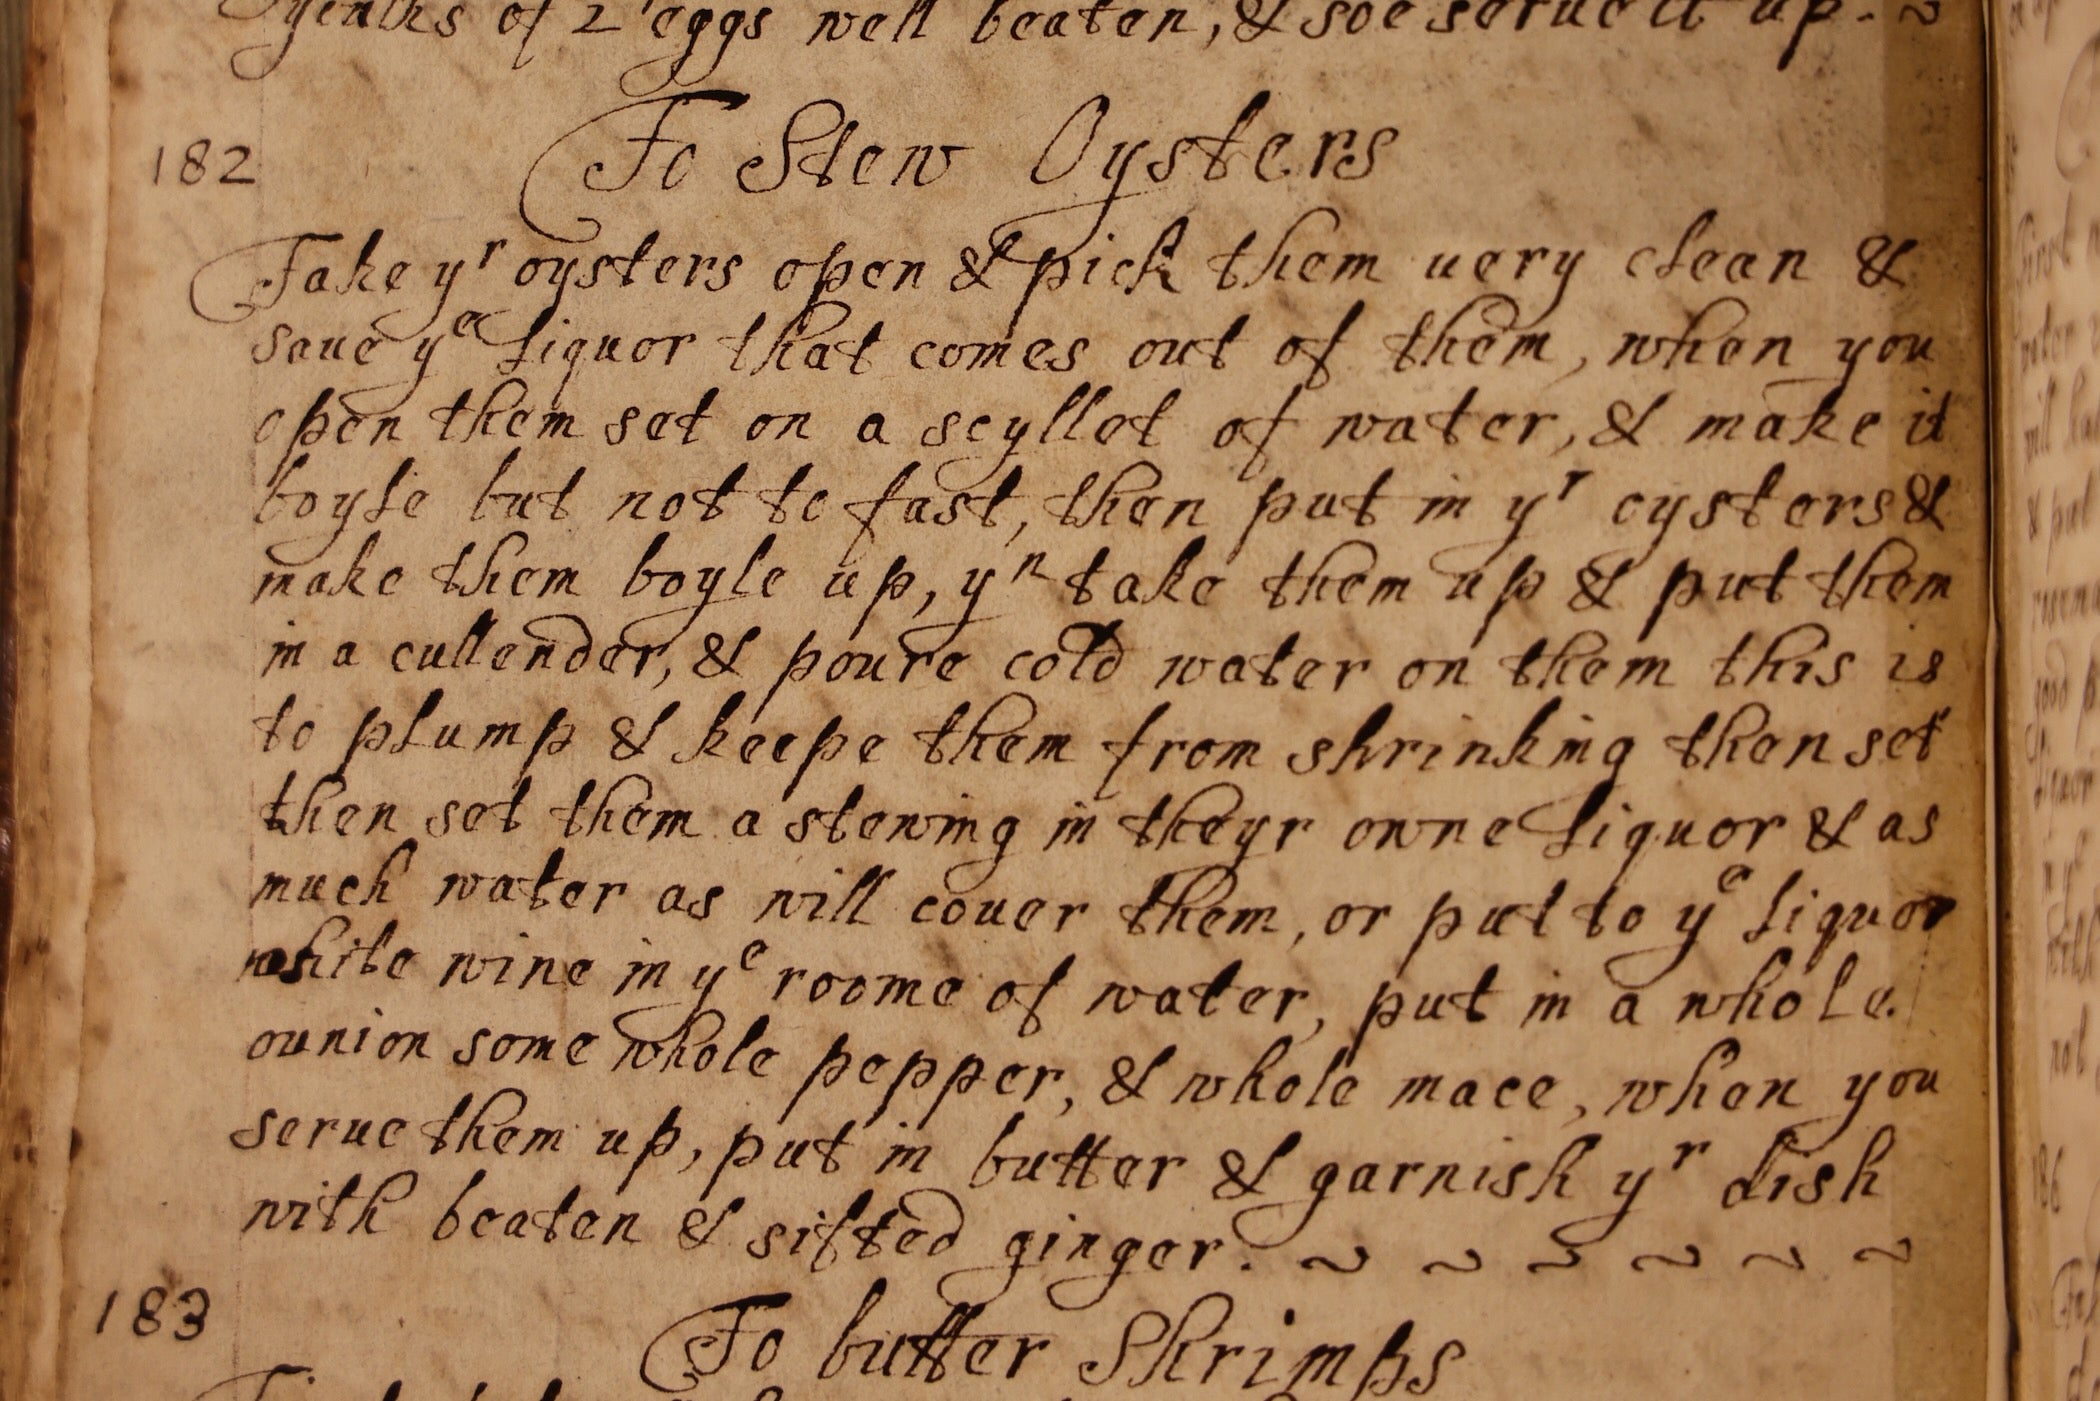 yealks of 2 eggs well beaten, & soe serue it up. ~
182 To Stew Oysters
Take yr oysters open & pick them uery clean &
saue ye liquor that comes out of them, when you
open them set on a scyllet of water, & make it
boyle but not to fast, then put in yr oysters &
make them boyle up, yn take them up & put them
in a cullender, & poure cold water on them this is
to plump & keepe them from shrinking then set
then set them a stewing in theyr owne liquor & as
much water as will couer them, or put to ye liquor
white wine in ye roome of water, put in a whole
ounion some whole pepper, & whole mace, when you
serue them up, put in butter & garnish yr dish
with beaten & sifted ginger. ~ ~ ~ ~ ~ ~
183 To butter Shrimps